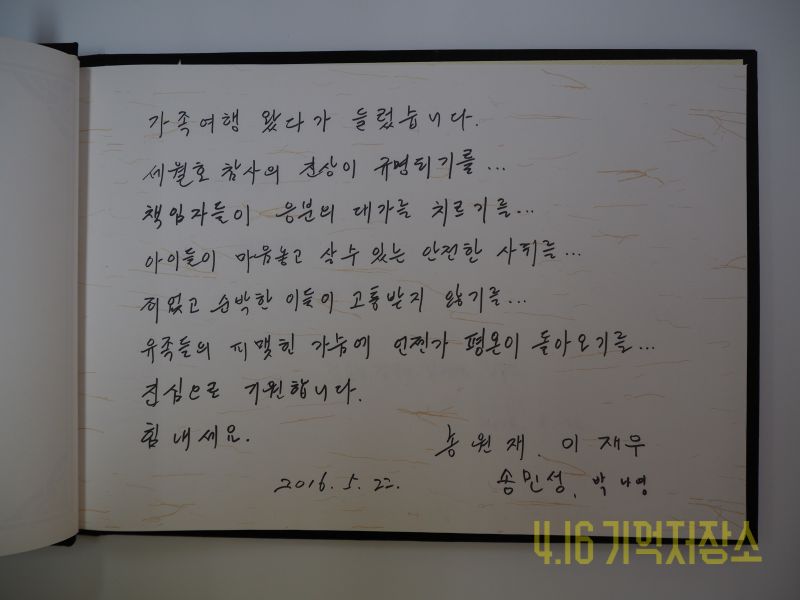 가족여행 왔다가 들렀습니다.
세월호 참사의 진상이 규명되기를...
책임자들이 응분의 대가를 치르기를...
아이들이 마음놓고 살 수 있는 안전한 사회를...
죄없고 순박한 이들이 고통받지 않기를...
유족들의 피맺힌 가슴에 언젠가 평온이 돌아오기를...
진심으로 기원합니다.
힘내세요.
송원재. 이재우
2016. 5. 22.
송민성, 박나영
4.16 기억저장소